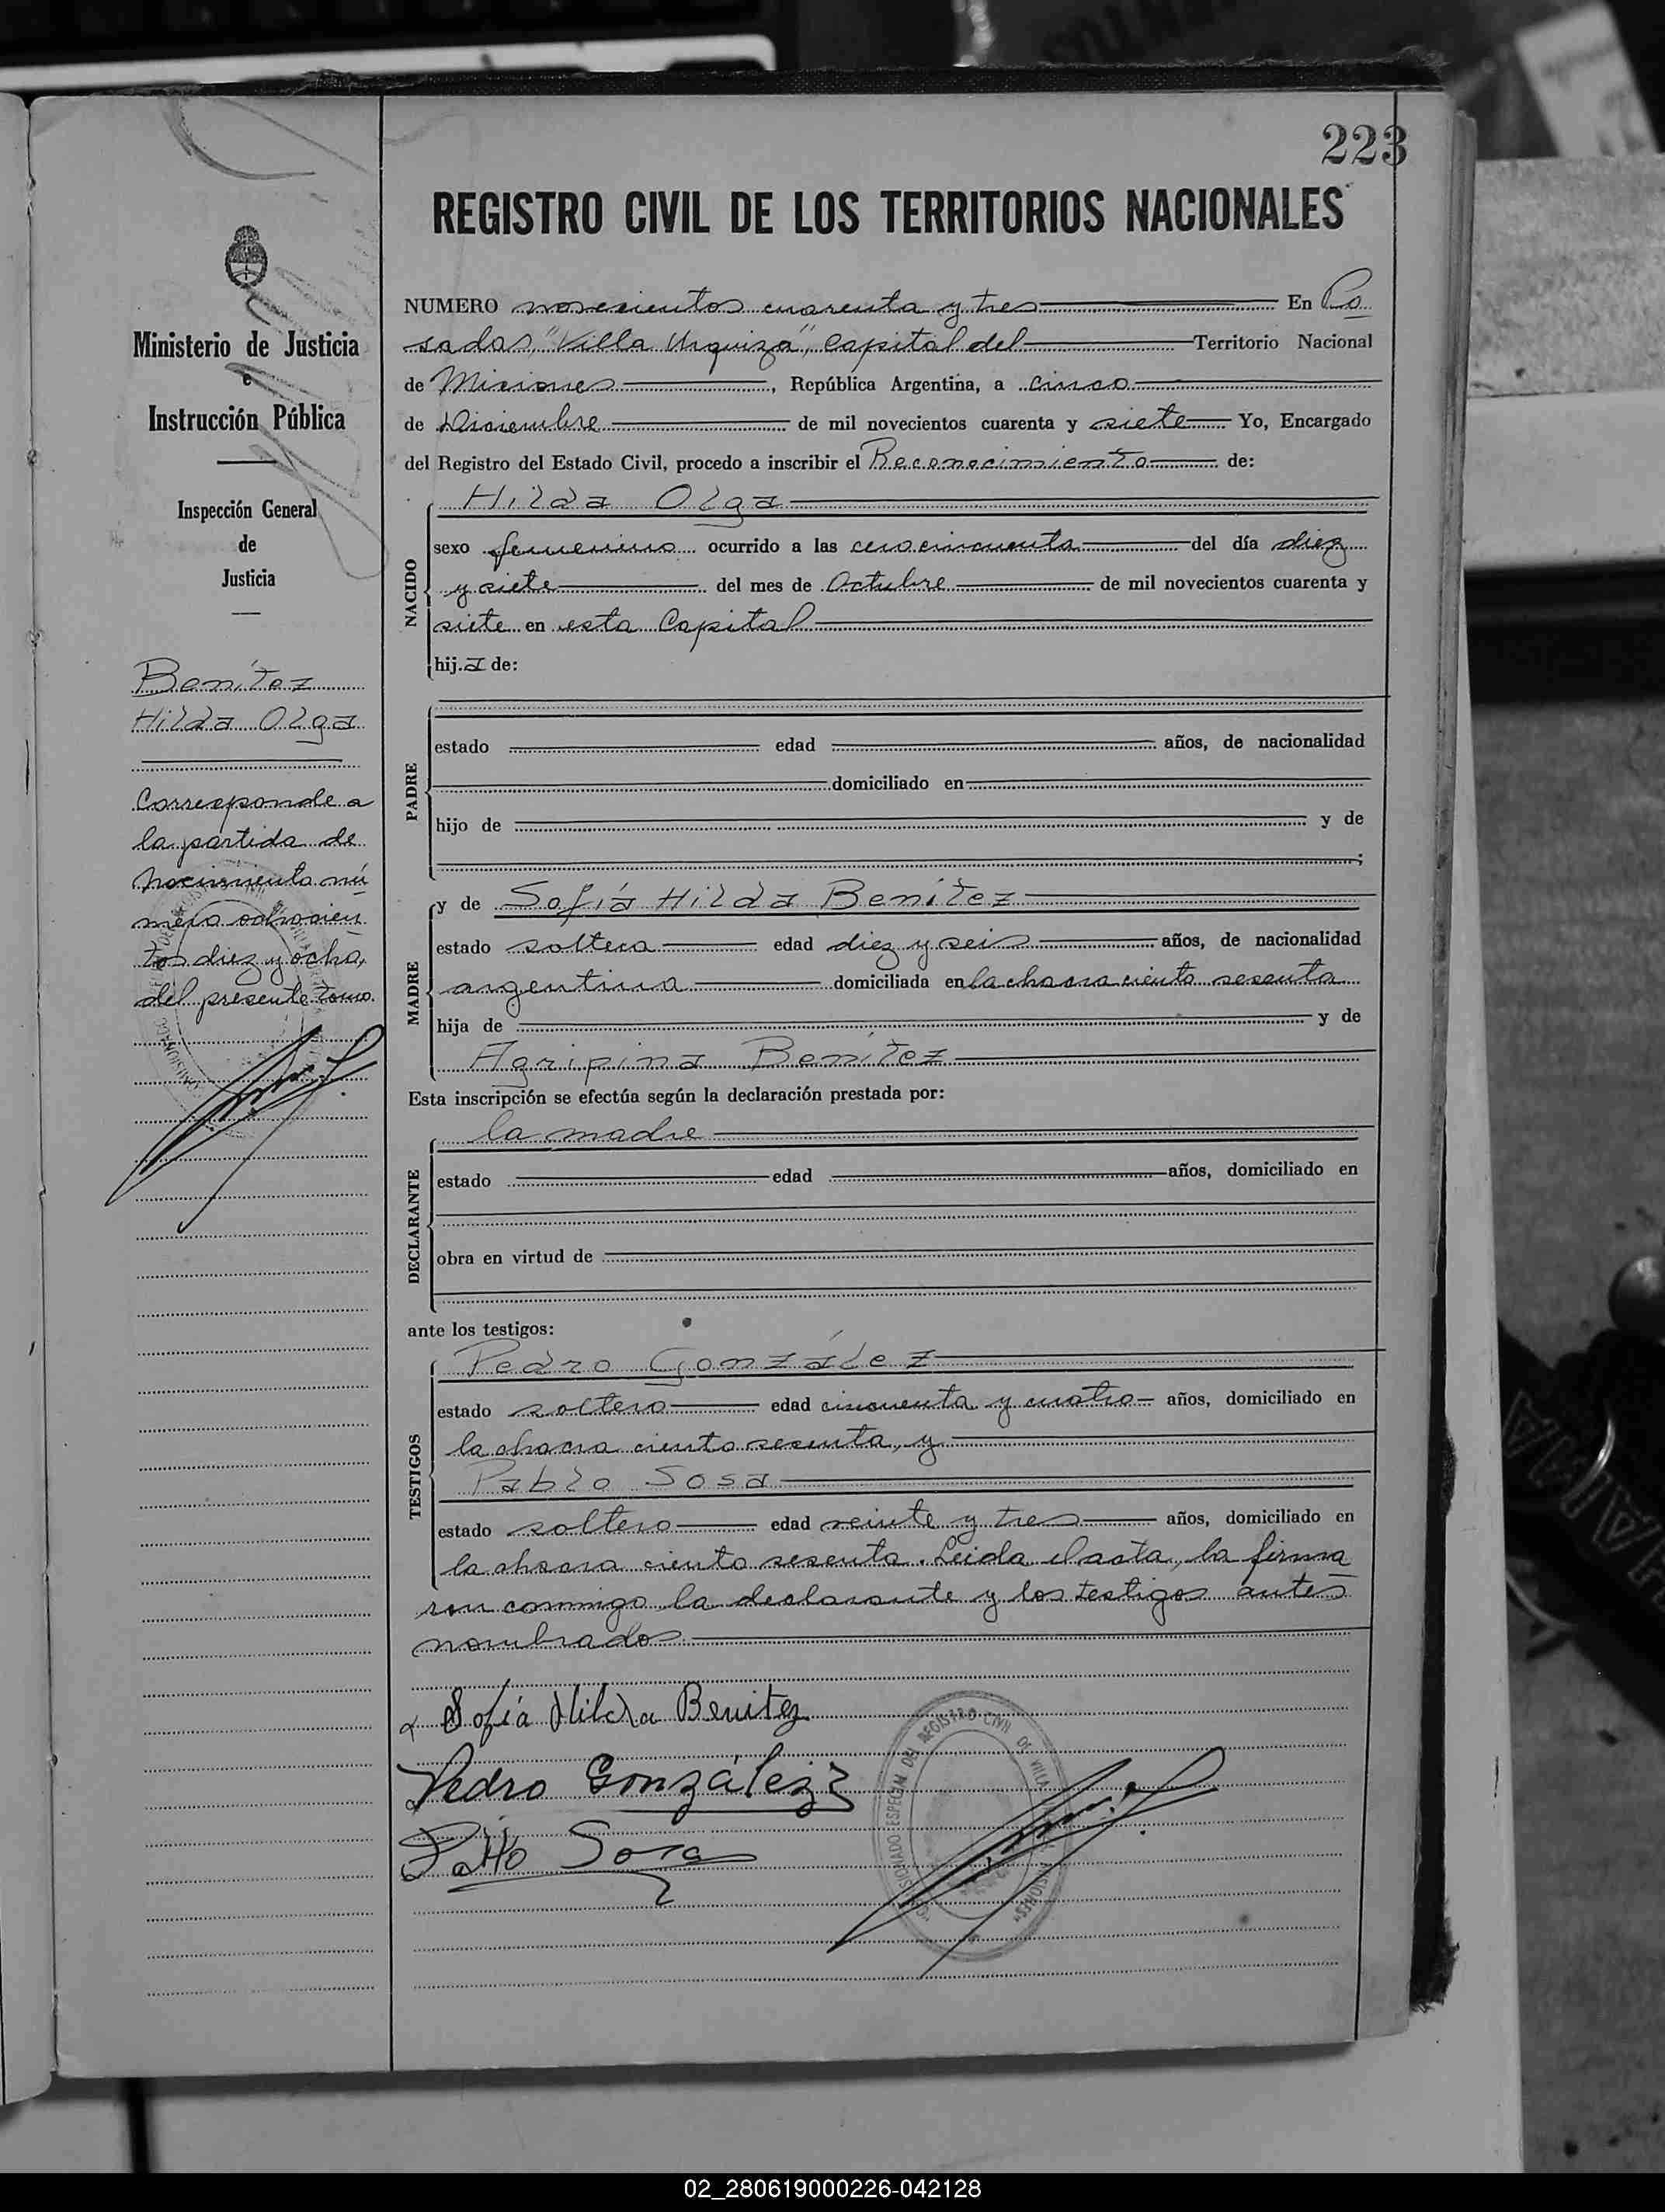 223
REGISTRO CIVIL DE LOS TERRITORIOS NACIONALES
Ministerio de Justicia
e
Instrucción Pública
Inspección General
de
Justicia
Benítez
Hilda Olga
Corresponde a
la partida de
nacimiento nú
mero ochocien
tos diez y ocho,
del presente tomo.
NUMERO novecientos cuarenta y tres En Po
sadas, "Villa Urquiza", Capital del Territorio Nacional
de Misiones, República Argentina, a cinco
de Diciembre de mil novecientos cuarenta y siete Yo, Encargado
del Registro del Estado Civil, procedo a inscribir el Reconocimiento de:
NACIDO
Hilda Olga
sexo femenino ocurrido a las cero cincuenta del día diez
y siete del mes de Octubre de mil novecientos cuarenta y
siete en esta Capital
hij.a de:
PADRE
estado edad años, de nacionalidad
domiciliado en
hijo de y de
;
MADRE
y de Sofía Hilda Benítez
estado soltera edad diez y seis años, de nacionalidad
argentina domiciliada en la chacra ciento sesenta
hija de y de
Agripina Benítez
Esta inscripción se efectúa según la declaración prestada por:
DECLARANTE
la madre
estado edad años, domiciliado en
obra en virtud de
ante los testigos:
TESTIGOS
Pedro González
estado soltero edad cincuenta y cuatro años, domiciliado en
la chacra ciento sesenta, y
Pablo Sosa
estado soltero edad veinte y tres años, domiciliado en
la chacra ciento sesenta. Leida el acta, la firma
ron conmigo la declarante y los testigos antes
nombrados.
Sofía Hilda Benitez
Pedro González
Pablo Sosa
COMISIONADO ESPECIAL DEL REGISTRO CIVIL DE VILLA MISIONES
02_280619000226-042128